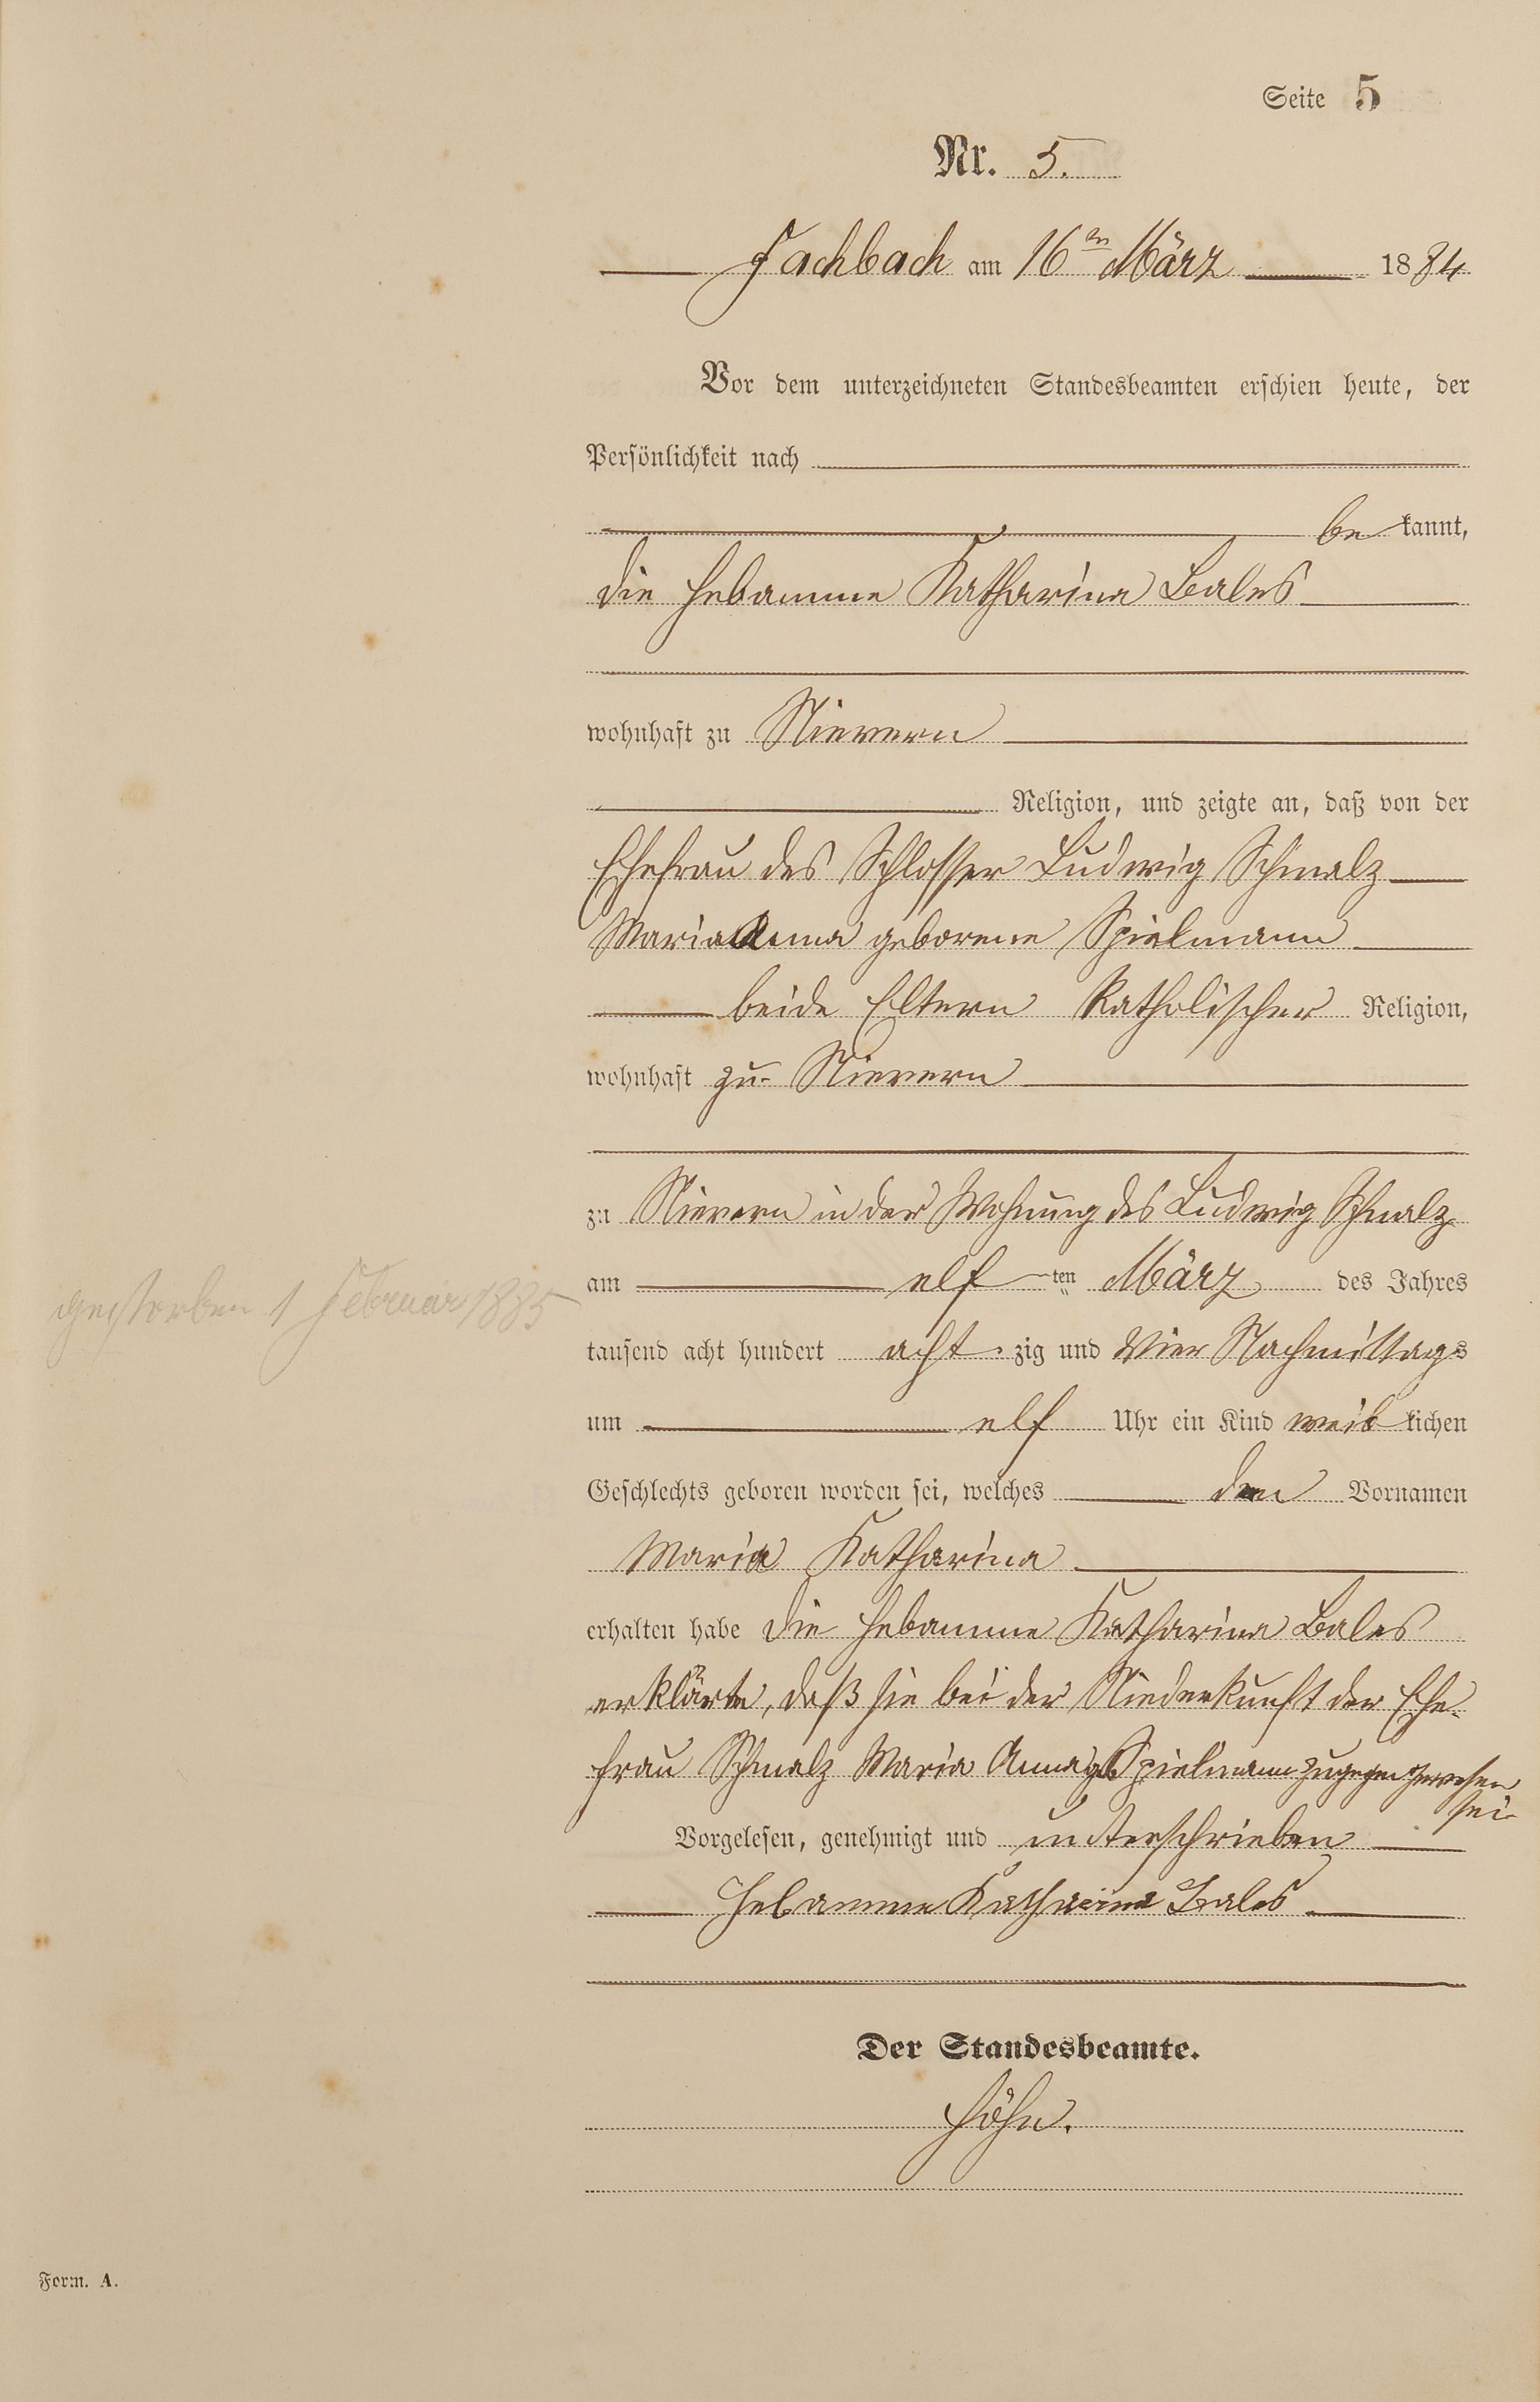 Seite 5
Nr. 5.
Fachbach am 16ten März 1884
Vor dem unterzeichneten Standesbeamten erschien heute, der
Persönlichkeit nach
be kannt,
die Hebamme Katharina Bales
wohnhaft zu Nievern
Religion, und zeigte an, daß von der
Ehefrau des Schlosser Ludwig Schmalz
Maria Anna geborene Spielmann
beide Eltern katholischer Religion,
wohnhaft zu Nievern
zu Nievern in der Wohnung des Ludwig Schmalz
am elf ten März des Jahres
gestorben 1 Februar 1885
tausend acht hundert acht zig und Vier Nachmittags
um elf Uhr ein Kind weib lichen
Geschlechts geboren worden sei, welches den Vornamen
Maria Katharina
erhalten habe die Hebamme Katharina Bales
erklärte, daß sie bei der Niederkunft der Ehe-
frau Schmalz Maria Anna gb Spielmann zugegen gewesen
sei
Vorgelesen, genehmigt und unterschrieben
Hebamme Katharina Bales
Der Standesbeamte.
Höhn.
Form. A.